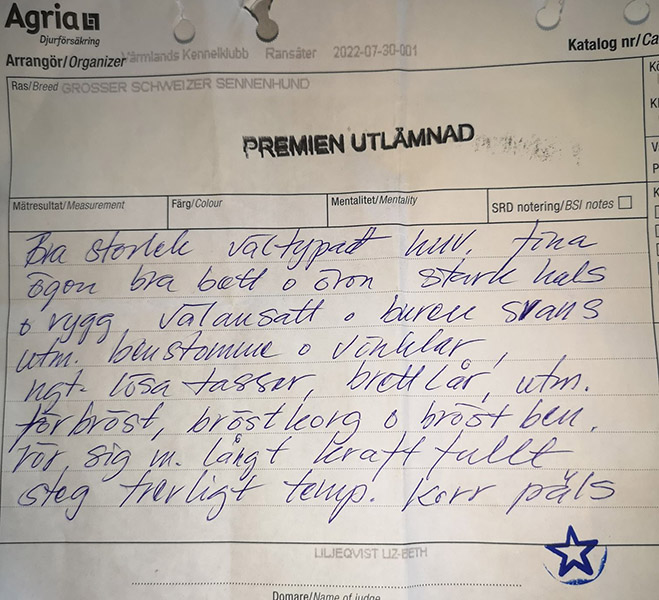 Agria
Djurförsäkring
Arrangör/Organizer Värmlands Kennelklubb Ransäter 2022-07-30-001
Katalog nr/Ca
Ras/Breed GROSSER SCHWEIZER SENNENHUND
PREMIEN UTLÄMNAD
Mätresultat/Measurement
Färg/Colour
Mentalitet/Mentality
SRD notering/BSI notes
Bra storlek vältypat huv. fina
ögon bra bett o öron stark hals
o rygg, välansatt o buren svans
utm. benstomme o vinklar,
ngt. lösa tassar, brett lår, utm.
förbröst, bröstkorg o bröst ben.
rör sig m. långt kraftfullt
steg trevligt temp. Korr päls
LILJEQVIST LIZ-BETH
Domare/Name of judge